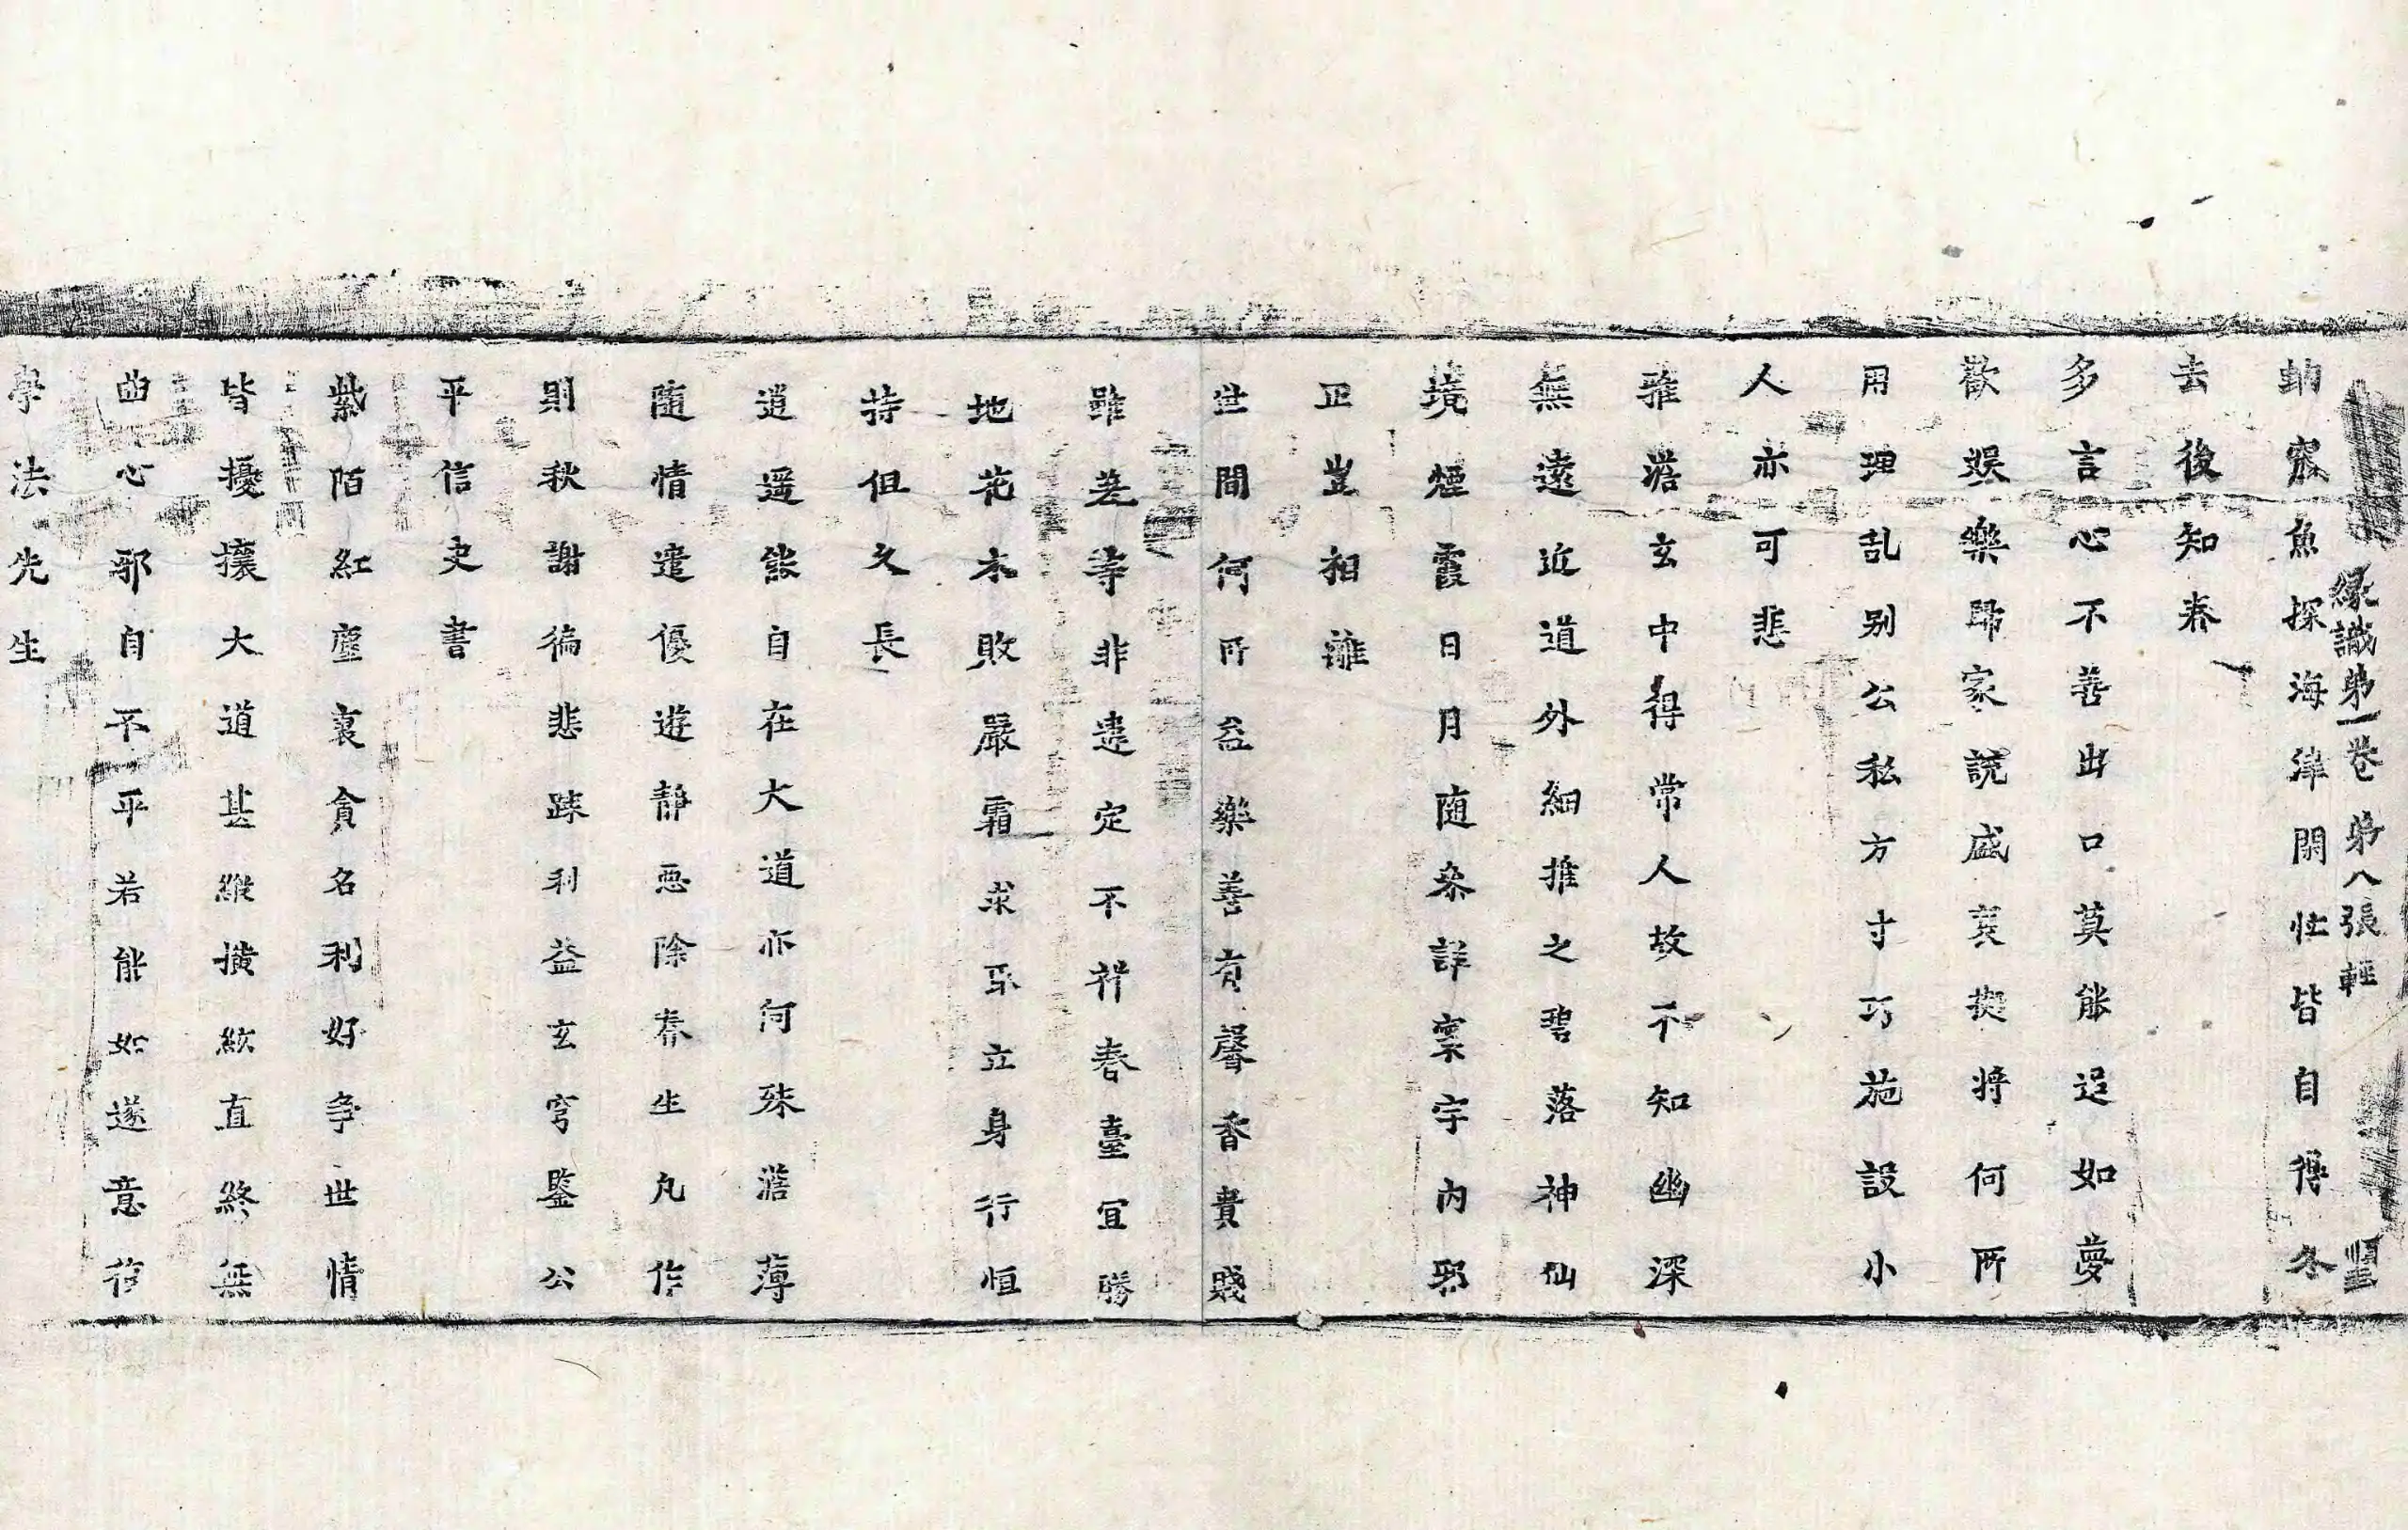 緣識第一卷 第八張 輕
蚋察魚探海津關性皆自得冬
去後知春
多言心不善出口莫能追如夢
歡娛樂歸家說盛衰擬將何所
用理乱別公私方寸巧施設小
人亦可悲
雅澹玄中得常人故不知幽深
無遠近道外細推之碧落神仙
境煙霞日月随叅詳寰宇內邪
正豈相離
世間何所益樂善有馨香貴賤
雖差等非遠定不祥春臺宜勝
地花木敗嚴霜求名立身行恒
持但久長
逍遥能自在大道亦何殊澹薄
随情遣優遊靜惡除養生凡作
則秋謝徧悲踈利益玄穹鑒公
平信史書
紫陌紅塵裏貪名利好爭世情
皆擾攘大道甚縱撗欲直終無
曲心邪自不平若能如遂意
學法先生